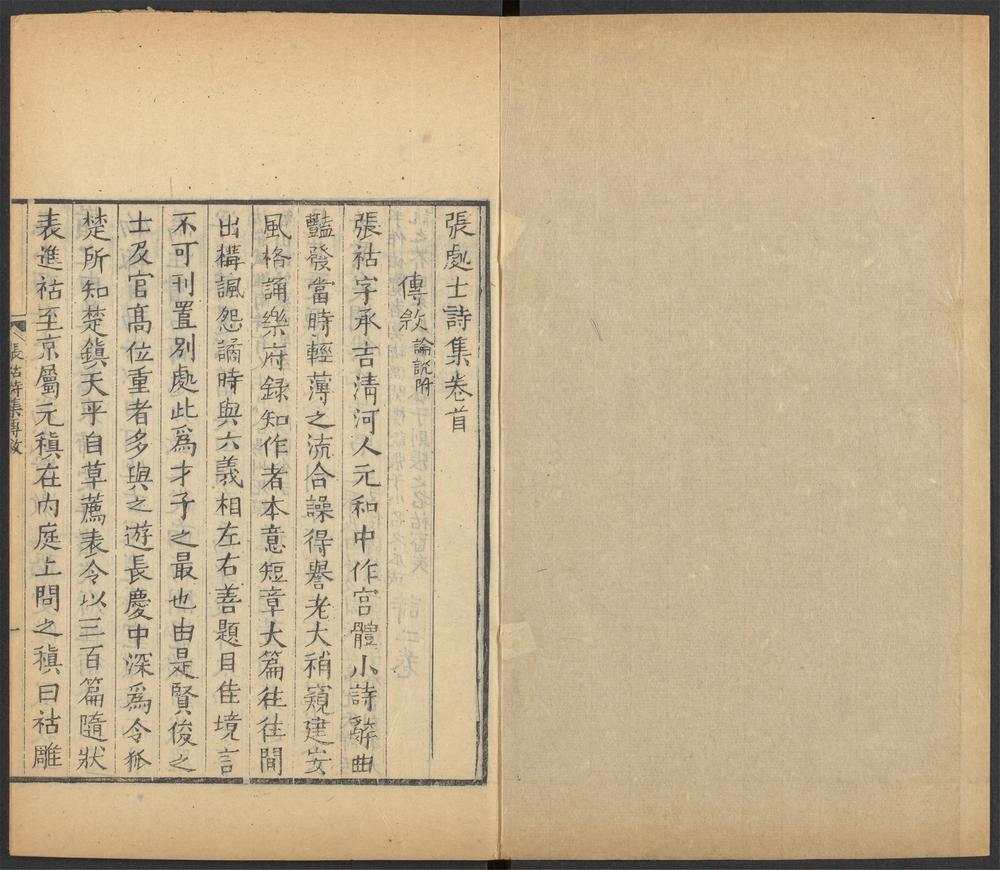 張處士詩集卷首
傳敘論説附
張祜字承吉清河人元和中作宮體小詩辭曲
豔發當時輕薄之流合譟得譽老大稍窺建安
風格誦樂府録知作者本意短章大篇往往間
出構諷怨譎時與六義相左右善題目佳境言
不可刊置别處此爲才子之最也由是賢俊之
士及官髙位重者多與之遊長慶中深爲令狐
楚所知楚鎮天平自草薦表令以三百篇隨狀
表進祜至京屬元稹在内庭上問之稹曰祜雕
張祜詩集傳敘
一